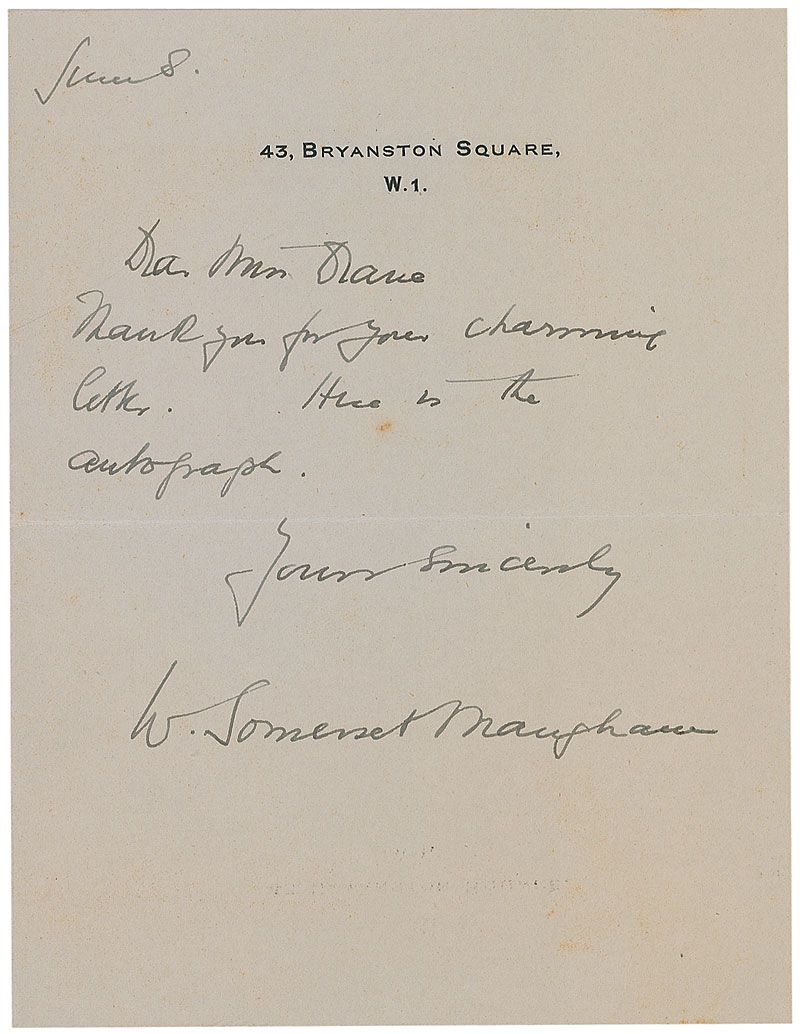 June 8.
43, BRYANSTON SQUARE,
W.1.
Dear Miss
Thank you for your charming
letter. Here is the
autograph.
Yours sincerely
W. Somerset Maugham